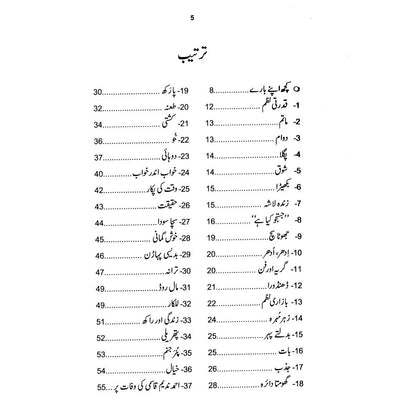 5
ترتیب
○ کچھ اپنے بارے ........ 8
1- قدرتی نظم ........ 12
2- ماتم ........ 13
3- دوام ........ 13
4- پگلا ........ 14
5- شوق ........ 14
6- بکھیڑا ........ 15
7- زندہ لاشہ ........ 15
8- ”جستجو کیا ہے“ ........ 16
9- جھوٹا سچ ........ 19
10- اِدھر، اُدھر ........ 20
11- گریہ اور فن ........ 20
12- ڈھنڈورا ........ 21
13- بازاری نظم ........ 22
14- زہر مُہرہ ........ 24
15- بدلتے پہر ........ 25
16- بات ........ 25
17- جذب ........ 26
18- گھومتا دائرہ ........ 28
19- پارکھ ........ 30
20- طعنہ ........ 32
21- کشتی ........ 34
22- ........ 36
23- دوہائی ........ 37
24- خواب اندر خواب ........ 40
25- وقت کی پکار ........ 42
26- حقیقت ........ 43
27- سچا سودا ........ 44
28- خوش گمانی ........ 45
29- بدیسی پہاڑن ........ 46
30- ترانہ ........ 47
31- مال روڈ ........ 49
32- للکار ........ 49
33- زندگی اور راکھ ........ 51
34- پتھریلی ........ 52
35- پنر جنم ........ 53
36- خیال ........ 54
37- احمد ندیم قاسمی کی وفات پر ........ 55